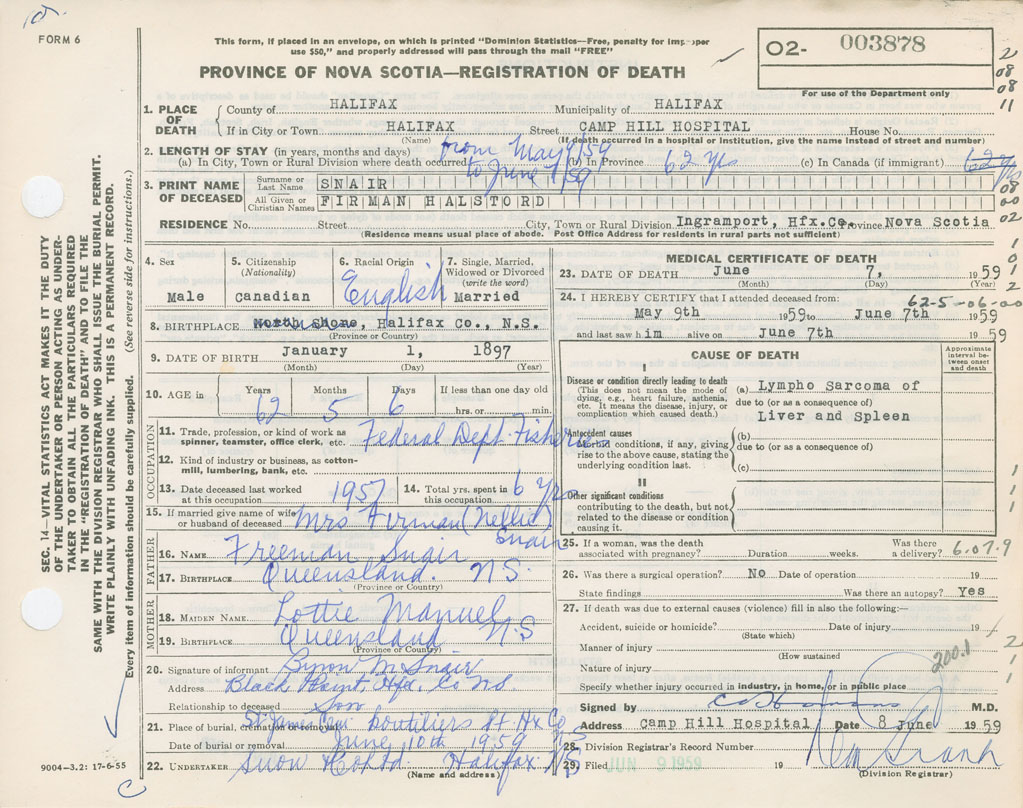 FORM 6
This form, if placed in an envelope, on which is printed "Dominion Statistics—Free, penalty for improper
use $50," and properly addressed will pass through the mail "FREE"
O2- 003878
For use of the Department only
PROVINCE OF NOVA SCOTIA—REGISTRATION OF DEATH
1. PLACE OF DEATH
County of HALIFAX Municipality of HALIFAX
If in City or Town HALIFAX Street CAMP HILL HOSPITAL House No.
(Name) (If death occurred in a hospital or institution, give the name instead of street and number)
2. LENGTH OF STAY (in years, months and days) from May 9/59
(a) In City, Town or Rural Division where death occurred to June 7/59 (b) In Province 62 yrs (c) In Canada (if immigrant) 62 yrs
3. PRINT NAME OF DECEASED
Surname or Last Name SNAIR
All Given or Christian Names FIRMAN HALSTORD
RESIDENCE No. Street City, Town or Rural Division Ingramport, Hfx.Co. Province Nova Scotia
(Residence means usual place of abode. Post Office Address for residents in rural parts not sufficient)
4. Sex
Male
5. Citizenship
(Nationality)
Canadian
6. Racial Origin
English
7. Single, Married, Widowed or Divorced
(write the word)
Married
8. BIRTHPLACE North Shore, Halifax Co., N.S.
(Province or Country)
9. DATE OF BIRTH January 1, 1897
(Month) (Day) (Year)
10. AGE in Years Months Days If less than one day old
62 5 6 hrs. or min.
OCCUPATION
11. Trade, profession or kind of work as spinner, teamster, office clerk, etc. Federal Dept. Fisheries
12. Kind of industry or business, as cotton-mill, lumbering, bank, etc.
13. Date deceased last worked at this occupation 1957
14. Total yrs. spent in this occupation 6 yrs
15. If married give name of wife or husband of deceased Mrs Firman (Nellie) Snair
FATHER
16. NAME Freeman Snair
17. BIRTHPLACE Queensland. N.S.
(Province or Country)
MOTHER
18. MAIDEN NAME Lottie Manuel
19. BIRTHPLACE Queensland N.S
(Province or Country)
20. Signature of informant Byron M Snair
Address Black Point, Hfx. Co NS.
Relationship to deceased Son
21. Place of burial, cremation or removal St. James Cem. Boutiliers Pt. Hx Co NS
Date of burial or removal June 10th 1959
22. UNDERTAKER Snow & Co Ltd. Halifax NS
(Name and address)
MEDICAL CERTIFICATE OF DEATH
23. DATE OF DEATH June 7, 1959
(Month) (Day) (Year)
24. I HEREBY CERTIFY that I attended deceased from: 62-5-06-00
May 9th 1959 to June 7th 1959
and last saw him alive on June 7th 1959
CAUSE OF DEATH
Approximate interval between onset and death
I
Disease or condition directly leading to death
(This does not mean the mode of dying, e.g., heart failure, asthenia, etc. It means the disease, injury, or complication which caused death.)
(a) Lympho Sarcoma of
due to (or as a consequence of)
Liver and Spleen
Antecedent causes
Morbid conditions, if any, giving rise to the above cause, stating the underlying condition last.
(b)
due to (or as a consequence of)
(c)
II
Other significant conditions
contributing to the death, but not related to the disease or condition causing it.
25. If a woman, was the death associated with pregnancy? Duration weeks. Was there a delivery? 6.07.9
26. Was there a surgical operation? No Date of operation 19
State findings Was there an autopsy? Yes
27. If death was due to external causes (violence) fill in also the following:—
Accident, suicide or homicide? Date of injury 19
(State which)
Manner of injury
(How sustained
Nature of injury 200.1
Specify whether injury occurred in industry, in home, or in public place
Signed by M.D.
Address Camp Hill Hospital Date 8 June 1959
28. Division Registrar's Record Number
29. Filed JUN 9 1959 19
(Division Registrar)
SEC. 14—VITAL STATISTICS ACT MAKES IT THE DUTY
OF THE UNDERTAKER OR PERSON ACTING AS UNDER-
TAKER TO OBTAIN ALL THE PARTICULARS REQUIRED
IN THE "REGISTRATION OF DEATH" AND TO FILE THE
SAME WITH THE DIVISION REGISTRAR WHO SHALL ISSUE THE BURIAL PERMIT.
WRITE PLAINLY WITH UNFADING INK. THIS IS A PERMANENT RECORD.
Every item of information should be carefully supplied. (See reverse side for instructions.)
9004-3.2: 17-6-55
2
08
08
11
08
00
02
1
0
1
2
1
1
1
1
2
1